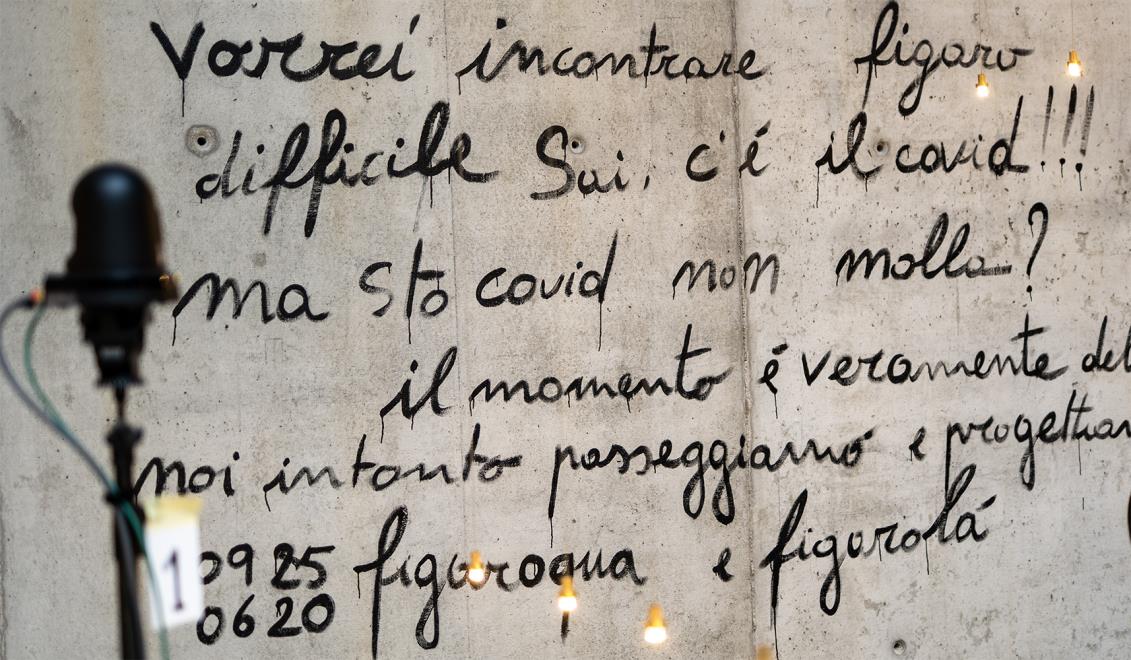 Vorrei incontrare figaro
difficile Sai, c'é il covid!!!
ma sto covid non molla?
il momento é veramente del
noi intanto passeggiamo e progettiam
0925 figaroqua e figarolá
0620
1